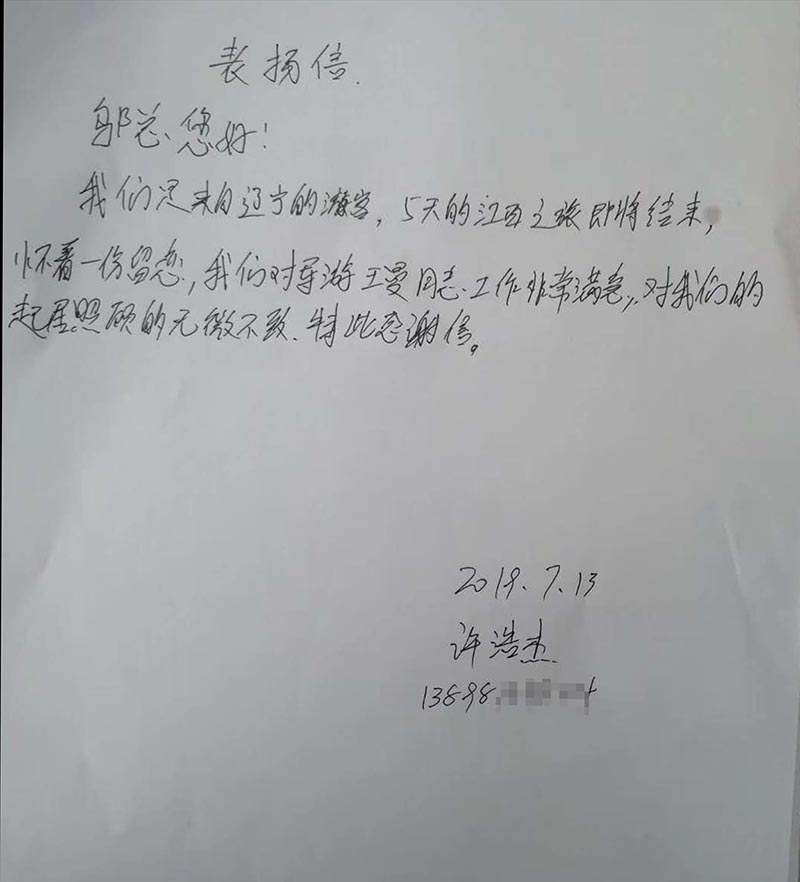 表扬信.
邬总、您好!
我们是来自辽宁的游客, 5天的江西之旅即将结束,
怀着一份留恋, 我们对导游王曼同志工作非常满意, 对我们的
起居照顾的无微不致. 特此感谢信。
2019.7.13
许浩杰
13898